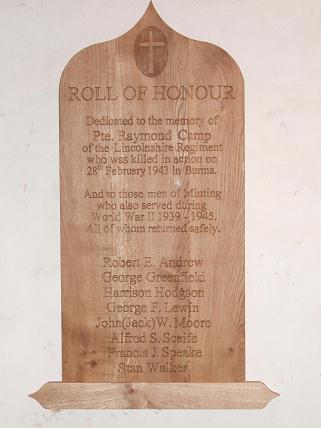 ROLL OF HONOUR
Dedicated to the memory of
Pte. Raymond Camp
of the Lincolnshire Regiment
who was killed in action on
28th February 1943 in Burma.
And to those men of Minting
who also served during
World War II 1939 - 1945.
All of whom returned safely.
Robert E. Andrew
George Greenfield
Harrison Hodgson
George F. Lewin
John(Jack)W. Moore
Alfred S. Scaife
Francis J. Speake
Stan Walker